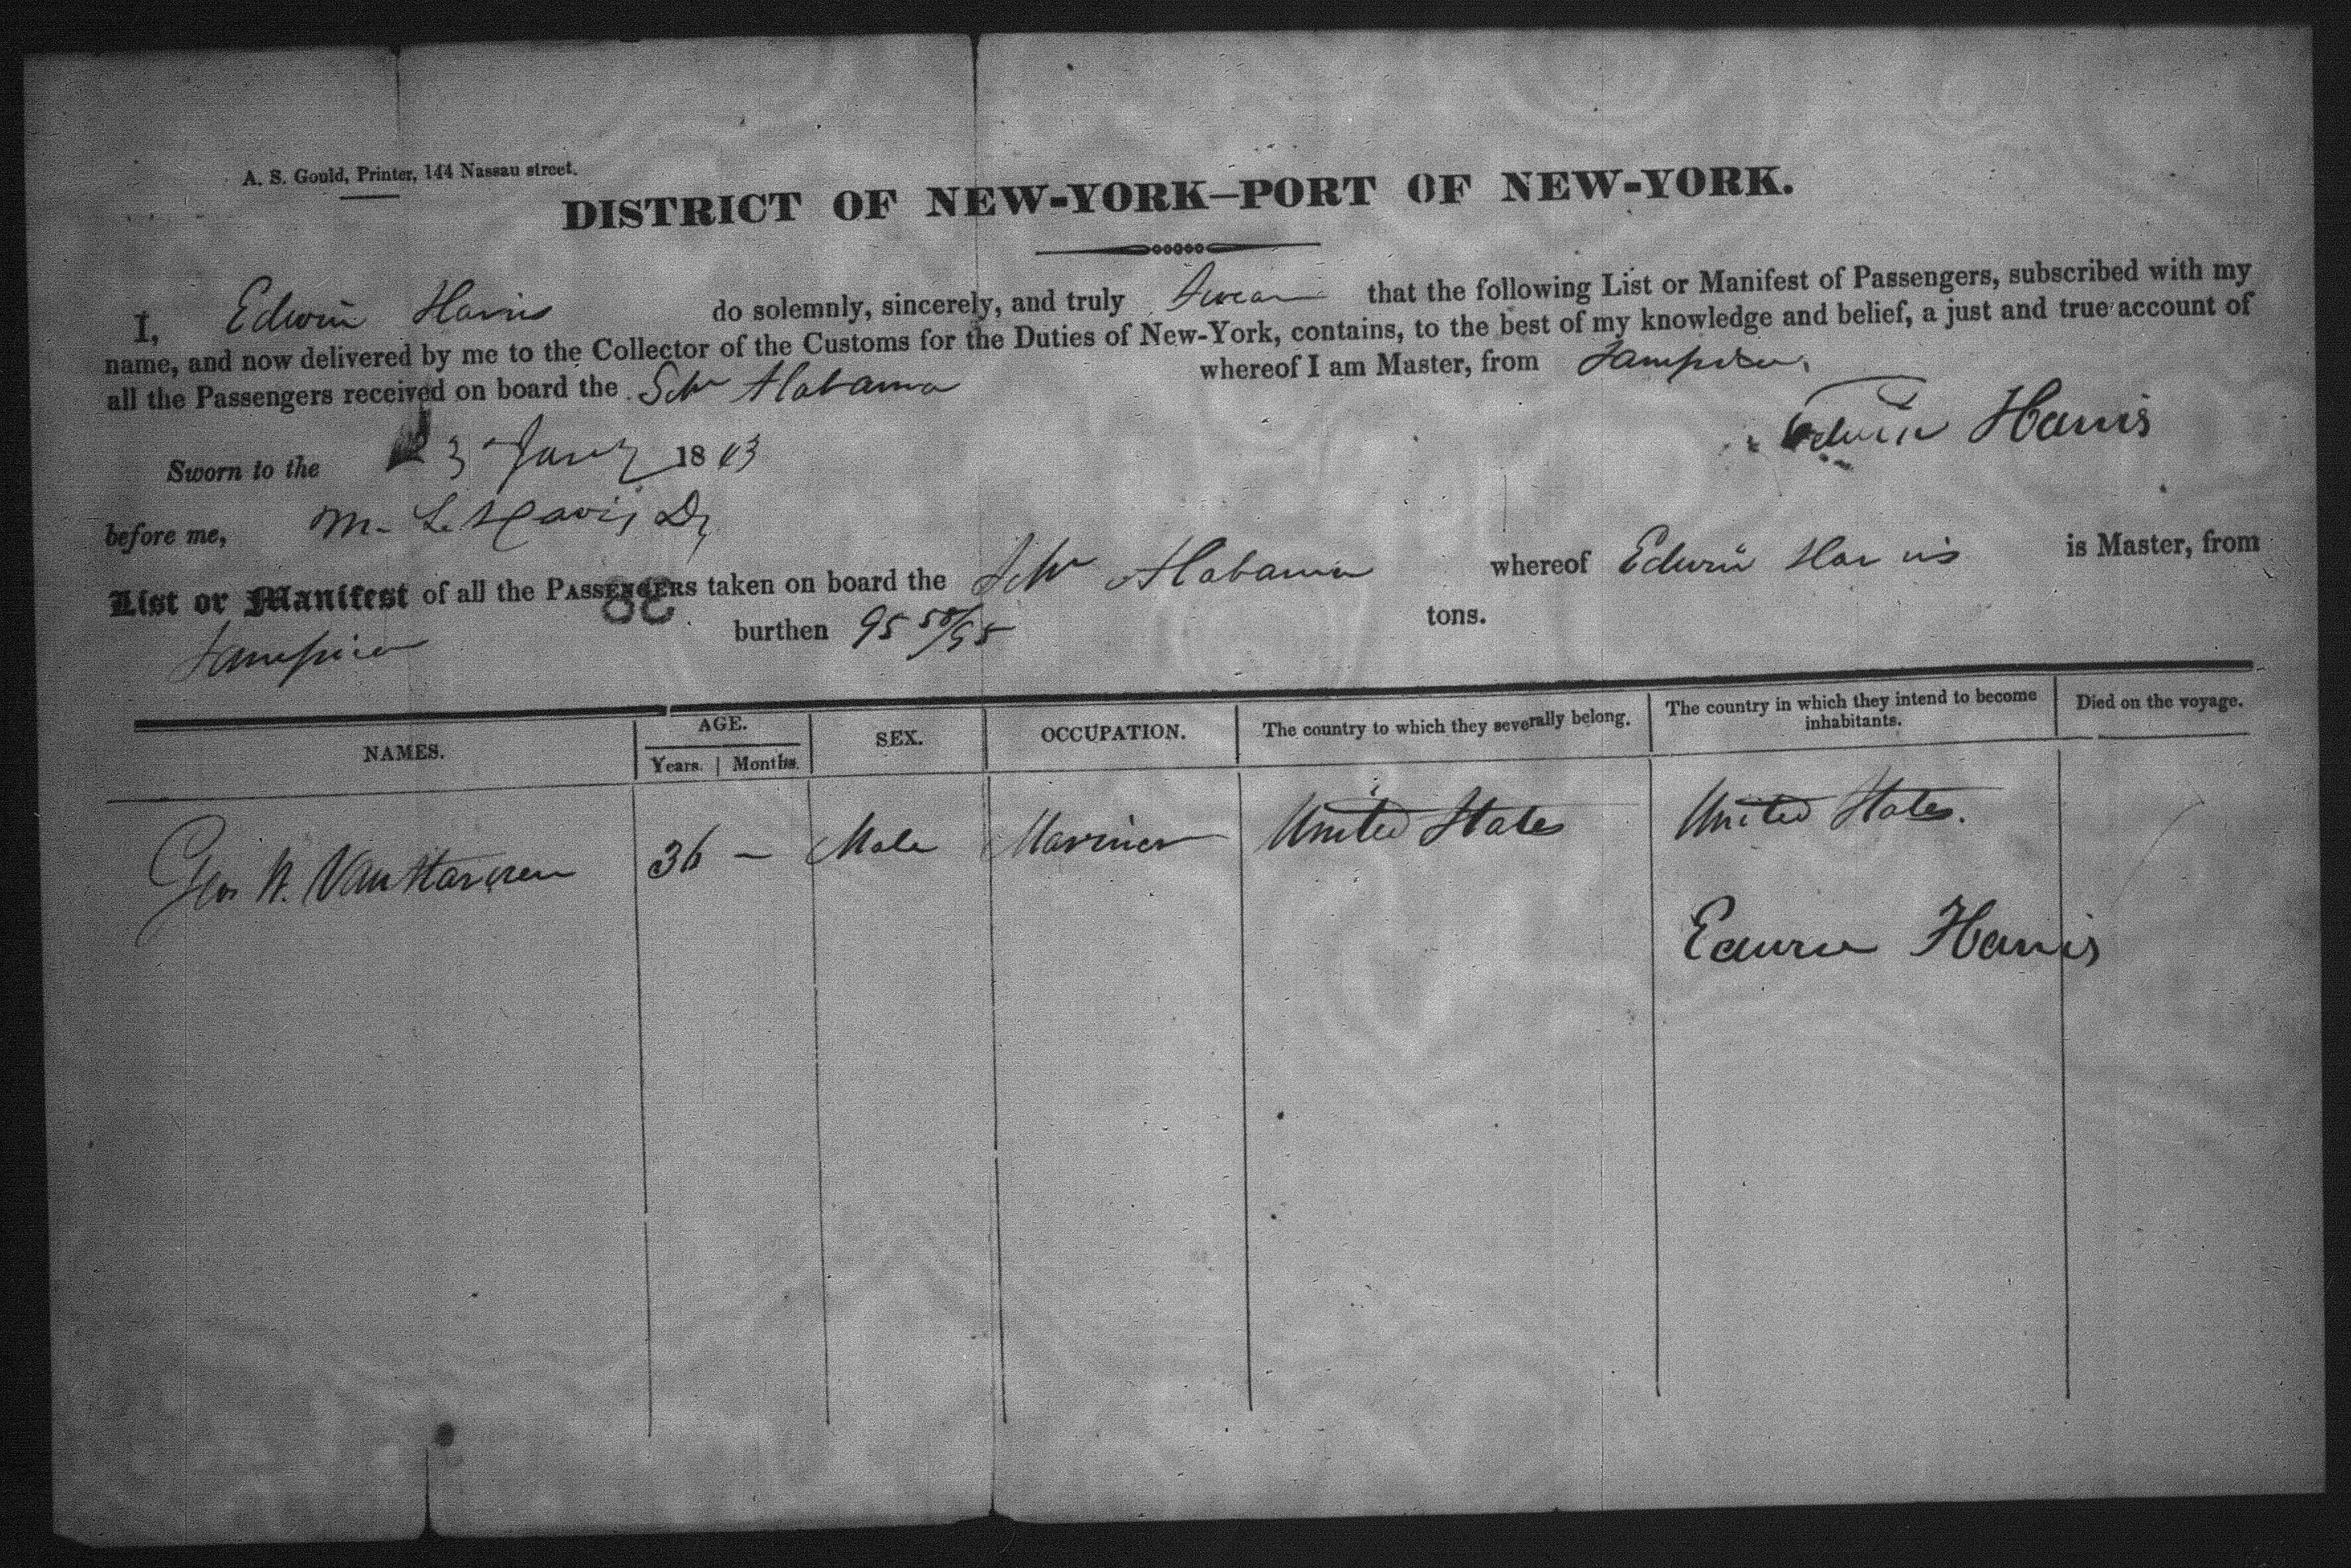 A. S. Gould, Printer, 144 Nassau street.
DISTRICT OF NEW-YORK—PORT OF NEW-YORK.
I, Edwin Harris do solemnly, sincerely, and truly Swear that the following List or Manifest of Passengers, subscribed with my
name, and now delivered by me to the Collector of the Customs for the Duties of New-York, contains, to the best of my knowledge and belief, a just and true account of
all the Passengers received on board the Schr Alabama whereof I am Master, from Tampico.
Edwin Harris
Sworn to the 3 Jany 1843
before me, M. L. Davis Dy
List or Manifest of all the PASSENGERS taken on board the Schr Alabama whereof Edwin Harris is Master, from
Tampico burthen 95 58/95 tons.
NAMES. AGE. SEX. OCCUPATION. The country to which they severally belong. The country in which they intend to become inhabitants. Died on the voyage.
Years. Months.
Geo. W. 36 — Male Mariner United States United States.
Edwin Harris